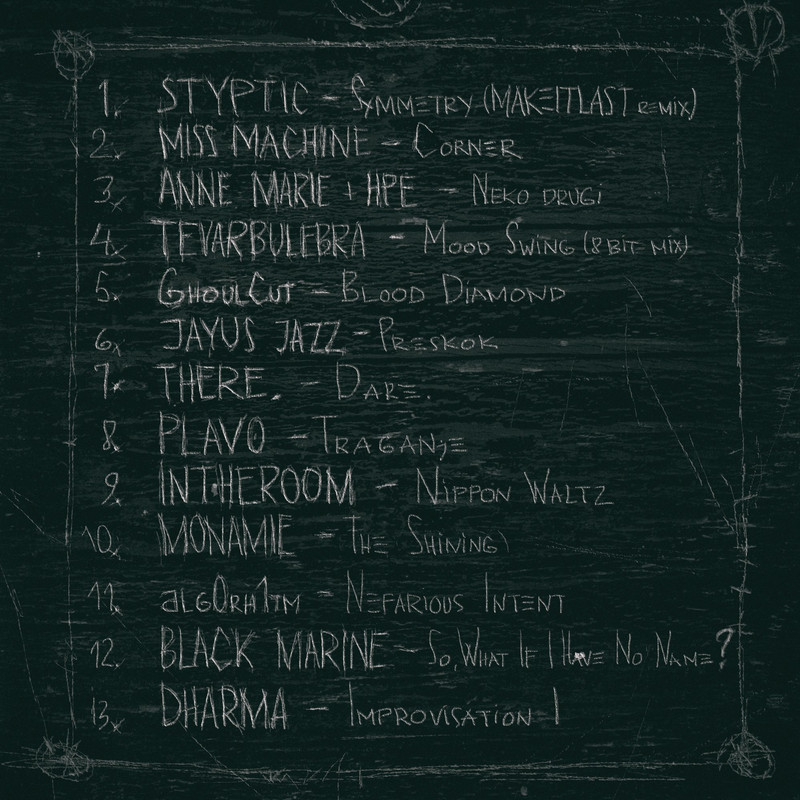 1. STYPTIC - SYMMETRY (MAKEITLAST REMIX)
2. MISS MACHINE - CORNER
3. ANNE MARIE + HPE - NEKO DRUGI
4. TEVARBULEBRA - MOOD SWING (8 BIT MIX)
5. GHOULCUT - BLOOD DIAMOND
6. JAYUS JAZZ - PRESKOK
7. THERE. - DARE.
8. PLAVO - TRAGANJE
9. INTHEROOM - NIPPON WALTZ
10. MONAMIE - THE SHINING
11. alg0rh1tm - NEFARIOUS INTENT
12. BLACK MARINE - SO, WHAT IF I HAVE NO NAME?
13. DHARMA - IMPROVISATION I